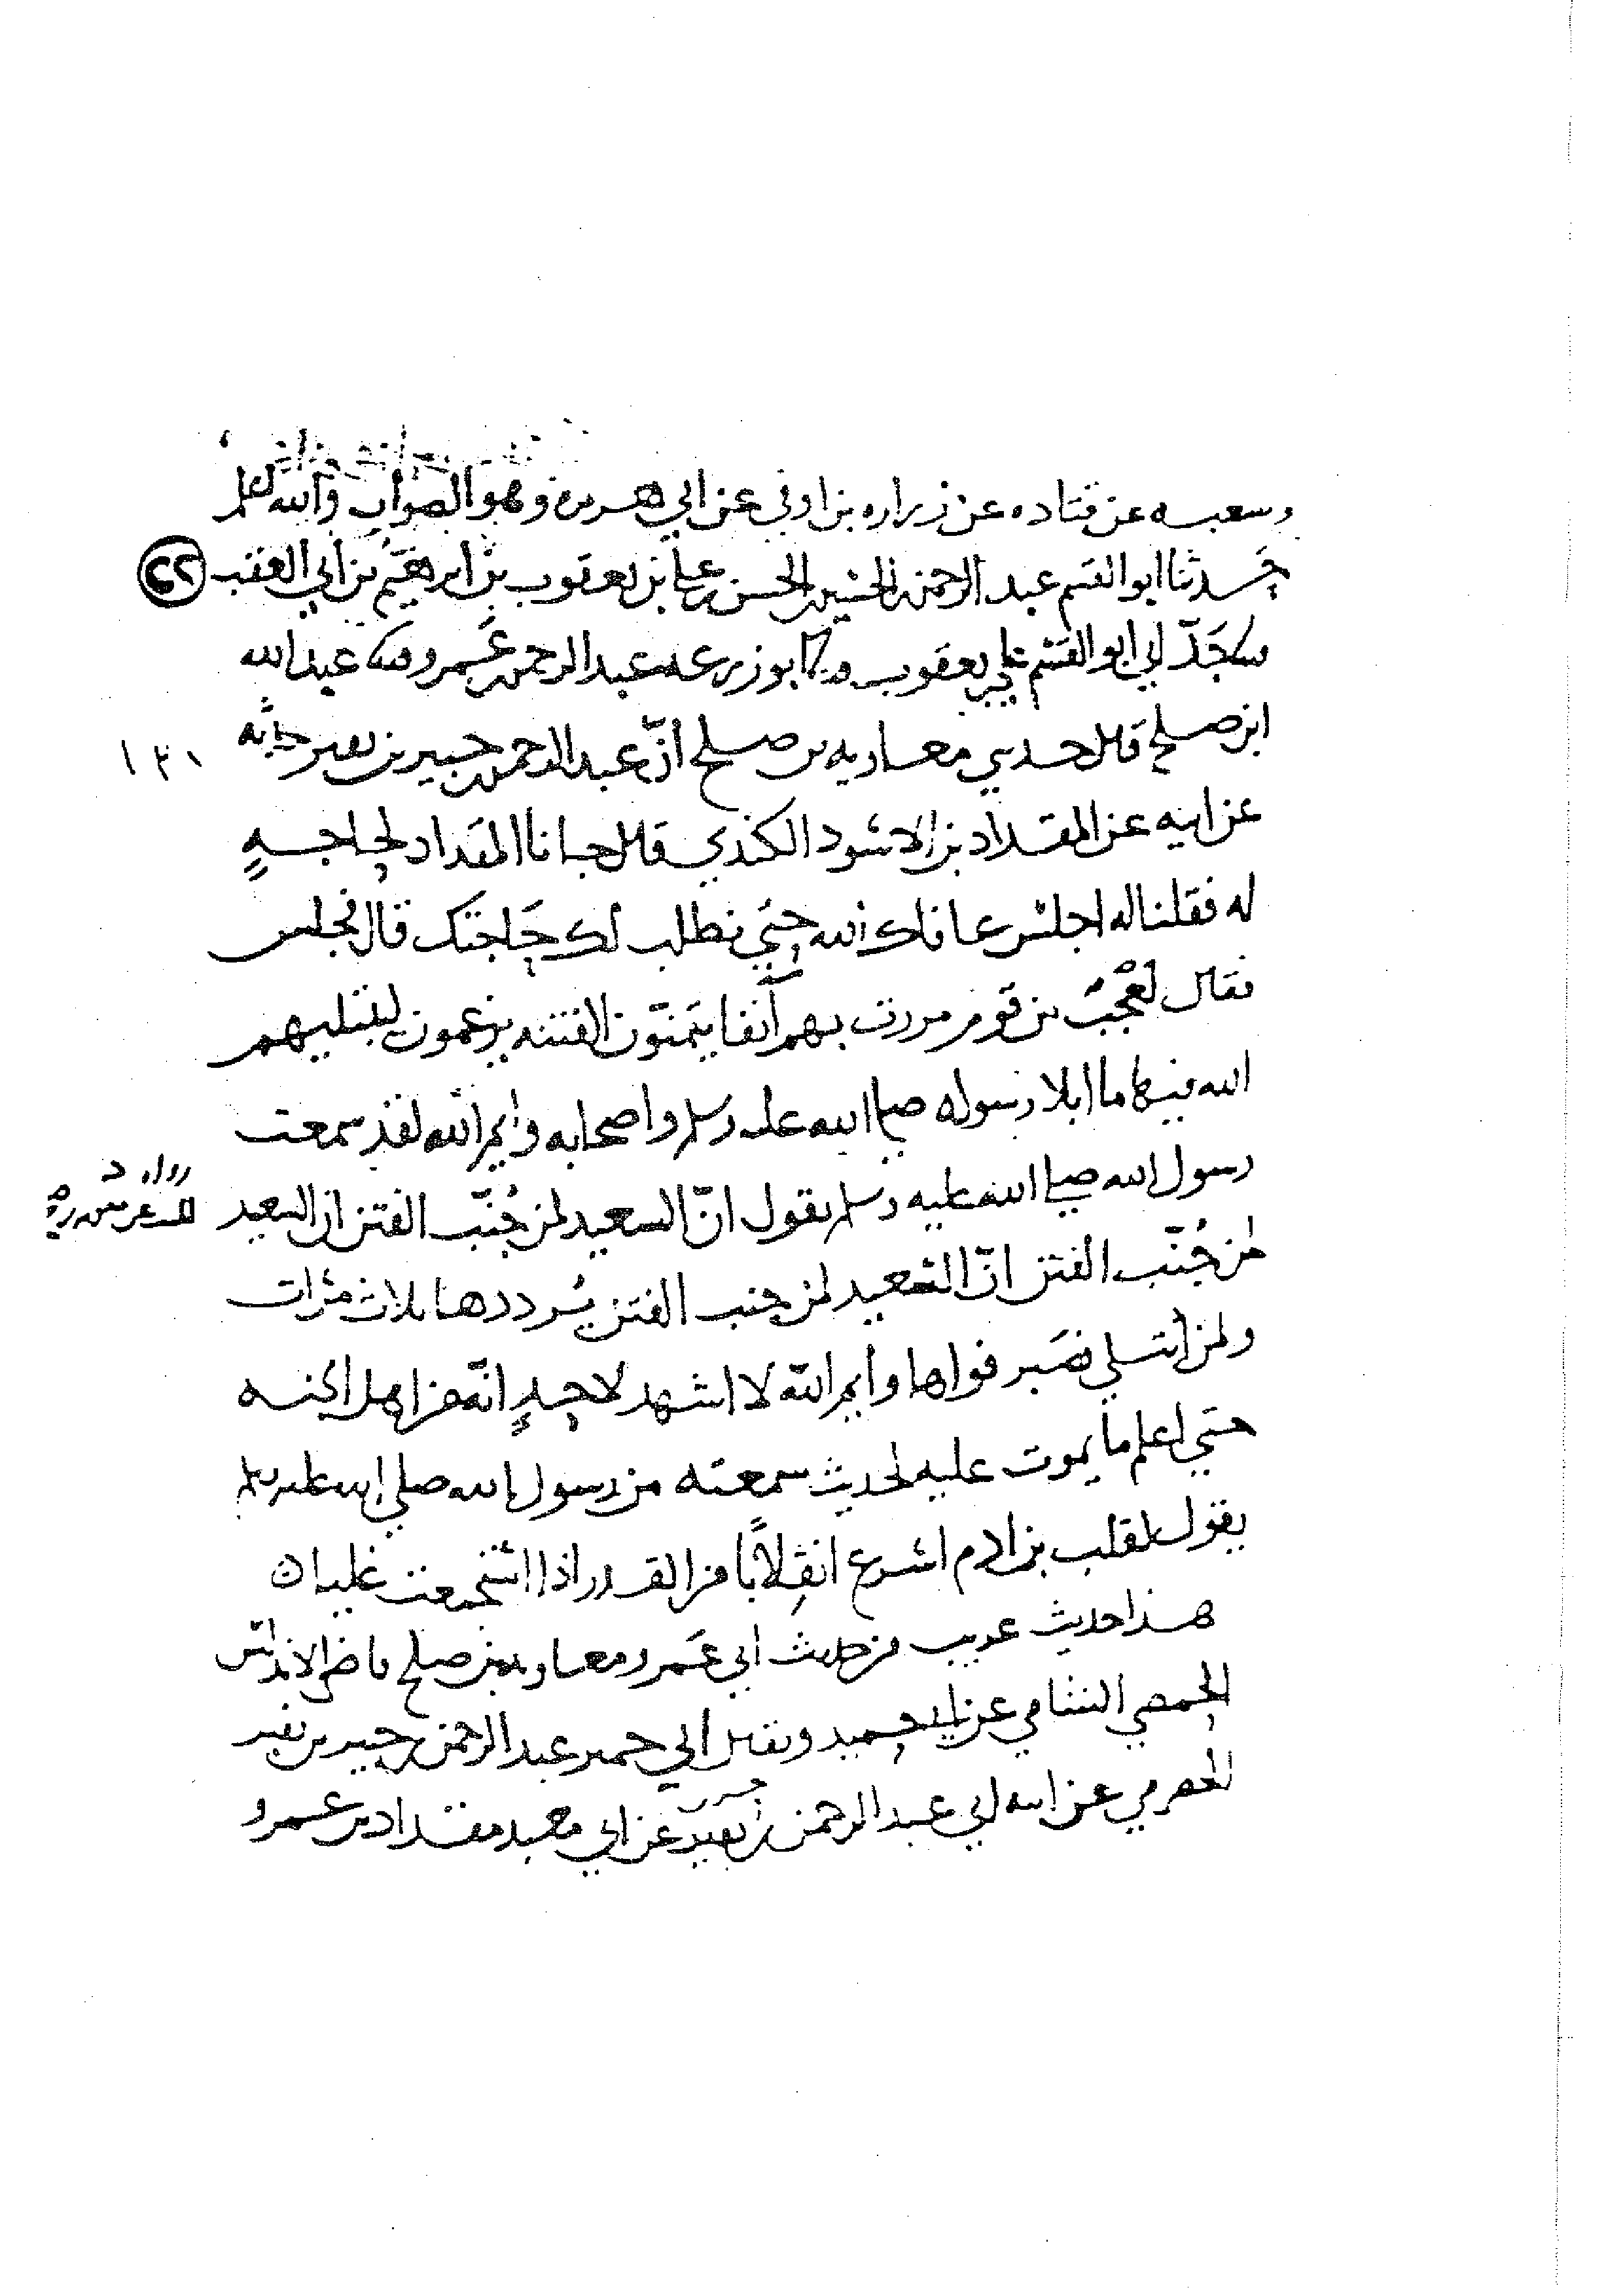 وسعبه عن قتاده عن زراره بن اوفى عن ابي هريره وهو الصواب والله اعلم
حدثنا ابو القسم عبد الرحمن بن الحسين بن الحسن بن علي بن يعقوب بن ابرهيم بن ابي العقب
جدّ ابي ابو القسم علي بن يعقوب ابو زرعه عبد الرحمن بن عمرو عبد الله
ابن صلح قال حدثني معاويه بن صلح انّ عبد الرحمن بن جبير بن نفير حدثه
١٣١
عن ابيه عن المقداد بن الاسود الكندي قال جانا المقداد لحاجةٍ
له فقلنا له اجلس عافاك الله حتي نطلب لك حاجتك قال فجلس
فقال لعجبٌ من قوم مررت بهم آنفا يتمنّون الفتنه يزعمون ليبتليهم
الله فيها ما ابلا رسوله صلى الله عليه وسلم واصحابه وايم الله لقد سمعت
رسول الله صلى الله عليه وسلم يقول انّ السعيد لمن جُنّب الفتن ان السعيد
رواه د
لمن جُنّب الفتن انّ السعيد لمن جنب الفتن يُرددها ثلاث مرات
ولمن ابتلي فصبر فواها وايم الله لا اشهد لاحدٍ انّه من اهل الجنه
حتي اعلم ما يموت عليه لحديث سمعته من رسول الله صلي الله عليه وسلم
يقول لقلب بن ادم اسرع انقلابًا من القدر اذا استجمعت غليان
هذا حديث غريب من حديث ابي عمرو معاويه بن صلح قاضي الاندلس
الحمصي الشامي عن ابي حميد ويقال ابي حمير عبد الرحمن بن جبير بن نفير
الحضرمي عن ابيه ابي عبد الرحمن عن ابي معبد مقداد بن عمرو